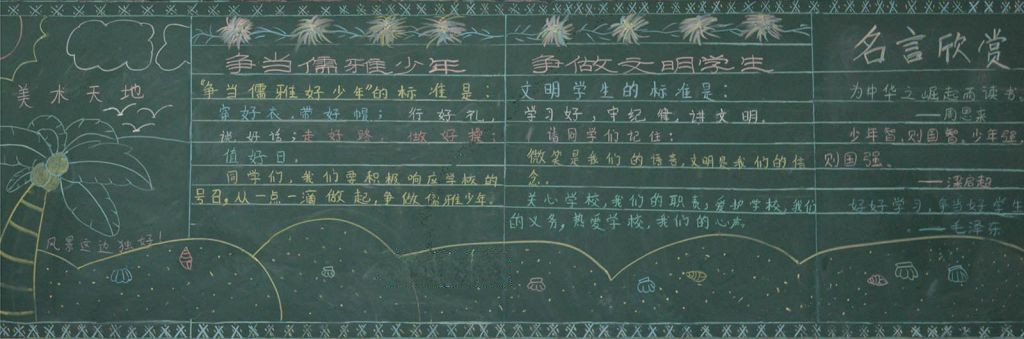 美术天地
风景这边独好！
争当儒雅少年
“争当儒雅好少年”的标准是：
穿好衣，带好帽；行好礼，
说好话；走好路，做好操；
值好日。
同学们，我们要积极响应学校的
号召，从一点一滴做起，争做儒雅少年。
争做文明学生
文明学生的标准是：
学习好，守纪律，讲文明。
请同学们记住：
微笑是我们的语言，文明是我们的信
念。
关心学校，我们的职责，爱护学校，我们
的义务，热爱学校，我们的心声。
名言欣赏
为中华之崛起而读书。
——周恩来
少年智，则国智，少年强，
则国强。
——梁启超
好好学习，争当好学生
——毛泽东